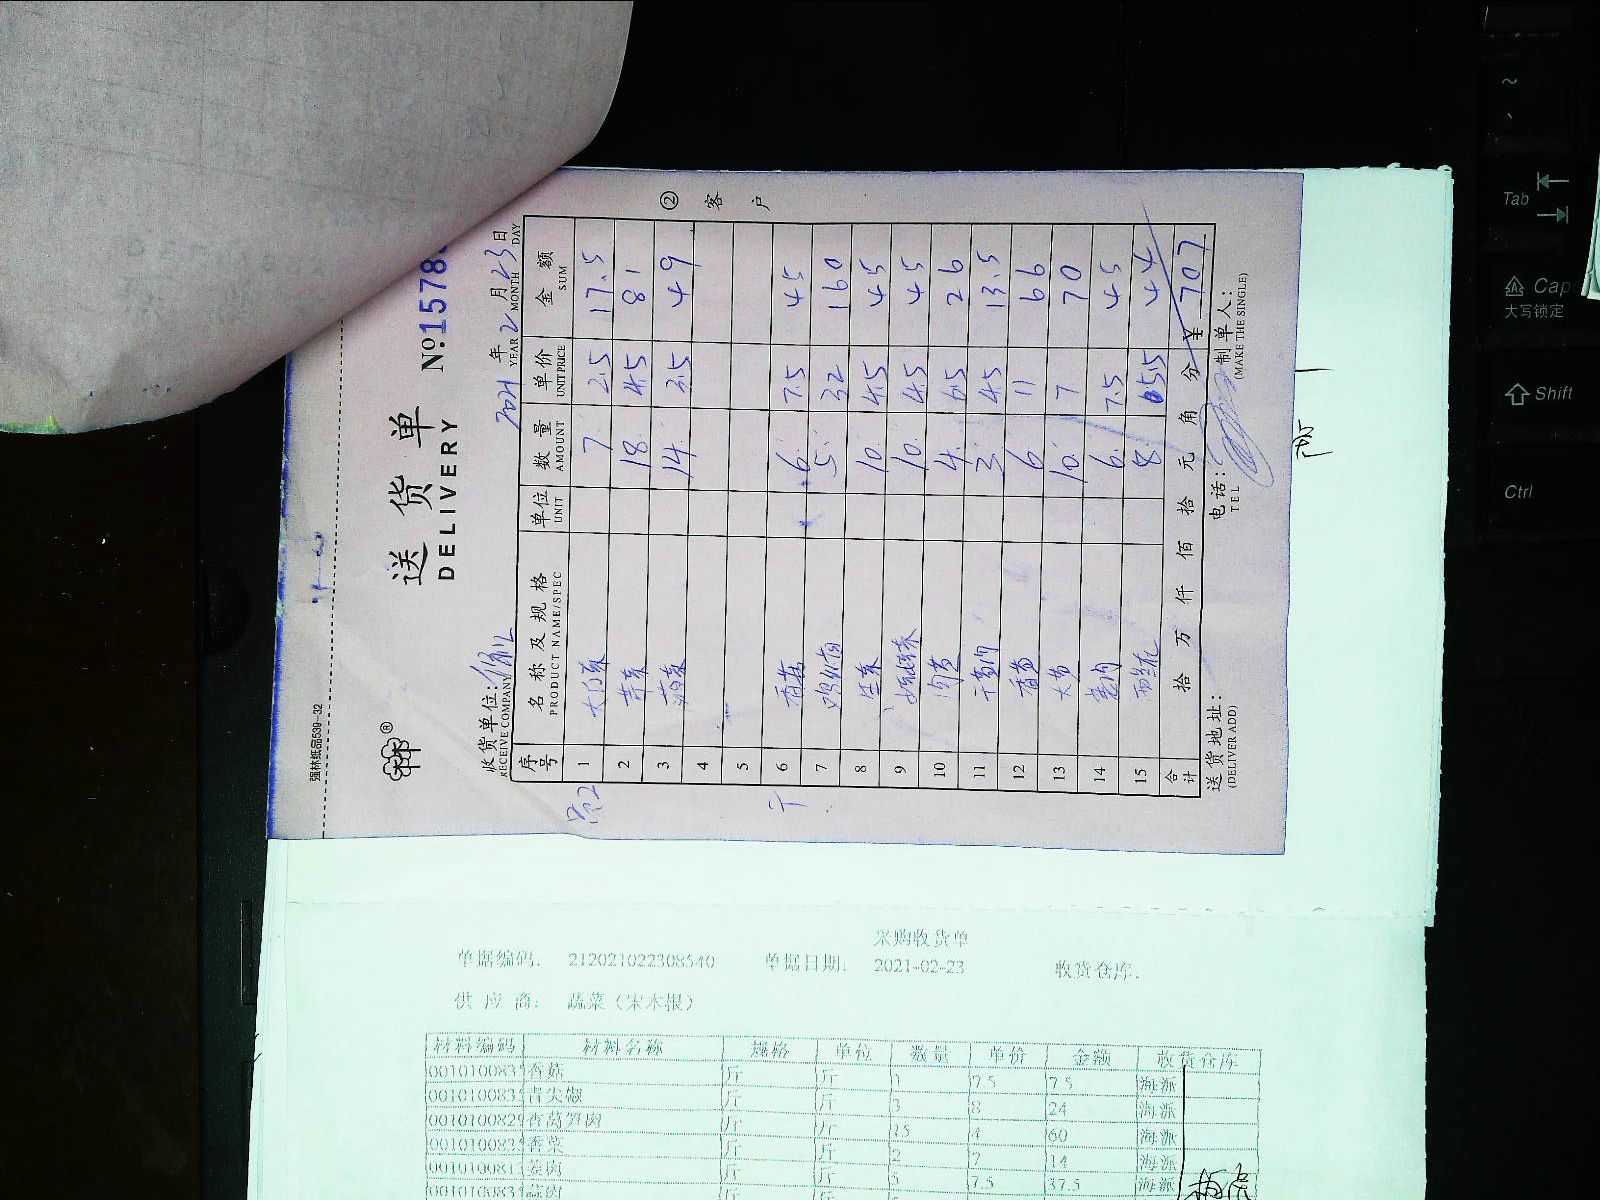 强林纸品539-32
送货单
DELIVERY
№1578
收货单位:
RECEIVE COMPANY
2021年2月23日
YEAR MONTH DAY
序号 名称及规格 单位 数量 单价 金额
PRODUCT NAME/SPEC UNIT AMOUNT UNIT PRICE SUM
1 7 2.5 17.5
2 芹菜 18 4.5 81
3 菠菜 14 3.5 49
4
5
6 香菇 6 7.5 45
7 5 32 160
8 生菜 10 4.5 45
9 10 4.5 45
10 4 6.5 26
11 3 4.5 13.5
12 6 11 66
13 10 7 70
14 姜肉 6 7.5 45
15 西兰花 8 5.5 44
合计 拾 万 仟 佰 拾 元 角 分 ¥ 707
送货地址:
(DELIVER ADD)
电话:
TEL
制单人:
(MAKE THE SINGLE)
② 客户
采购收货单
单据编码: 212021022308540 单据日期: 2021-02-23 收货仓库:
供应商: 蔬菜(宋木根)
材料编码 材料名称 规格 单位 数量 单价 金额 收货仓库
001010083 香菇 斤 斤 1 7.5 7.5 海派
001010083 青尖椒 斤 斤 3 8 24 海派
001010082 香莴笋肉 斤 斤 15 4 60 海派
001010083 香菜 斤 斤 2 7 14 海派
001010081 姜肉 斤 斤 5 7.5 37.5 海派
001010083 蒜肉 斤 斤
~
Tab
Cap
大写锁定
Shift
Ctrl